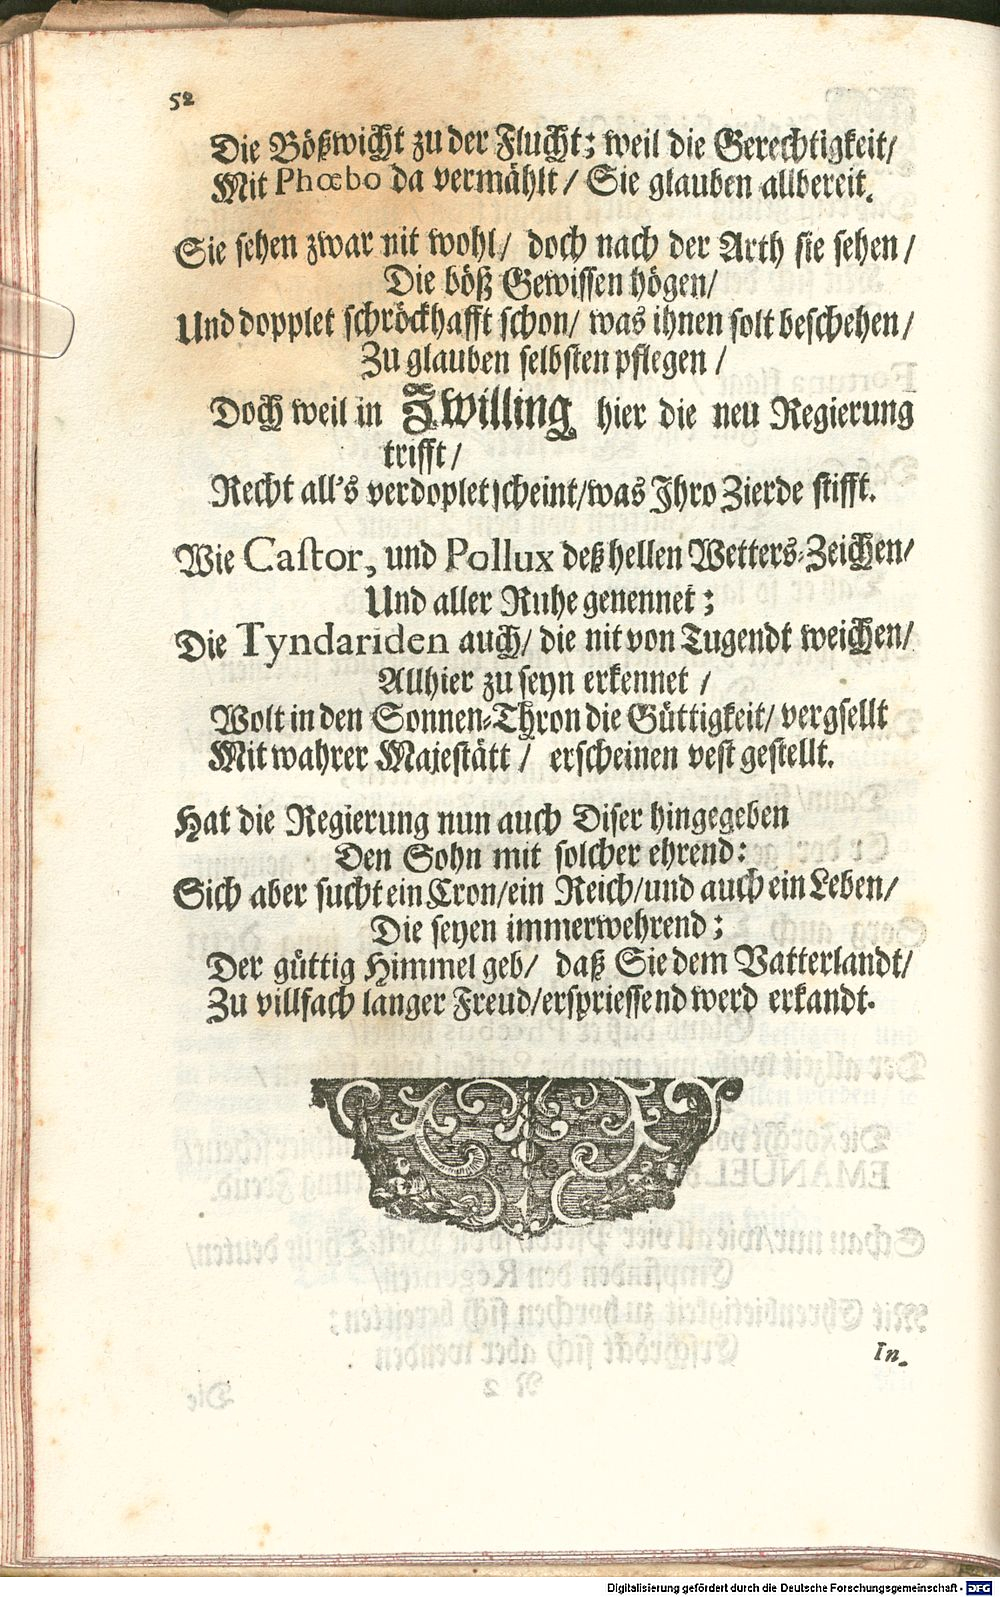 52
Die Bößwicht zu der Flucht; weil die Gerechtigkeit/
Mit Phœbo da vermählt / Sie glauben allbereit.
Sie sehen zwar nit wohl / doch nach der Arth sie sehen /
Die böß Gewissen högen /
Und dopplet schröckhafft schon / was ihnen solt beschehen /
Zu glauben selbsten pflegen /
Doch weil in Zwilling hier die neu Regierung
trifft /
Recht all's verdoplet scheint / was Ihro Zierde stifft.
Wie Castor, und Pollux deß hellen Wetters-Zeichen/
Und aller Ruhe genennet ;
Die Tyndariden auch / die nit von Tugendt weichen /
Allhier zu seyn erkennet /
Wolt in den Sonnen-Thron die Güttigkeit / vergsellt
Mit wahrer Majestätt / erscheinen vest gestellt.
Hat die Regierung nun auch Diser hingegeben
Den Sohn mit solcher ehrend:
Sich aber sucht ein Cron / ein Reich / und auch ein Leben /
Die seyen immerwehrend ;
Der güttig Himmel geb / daß Sie dem Vatterlandt /
Zu villfach langer Freud / erspriessend werd erkandt.
In-
Digitalisierung gefördert durch die Deutsche Forschungsgemeinschaft - DFG